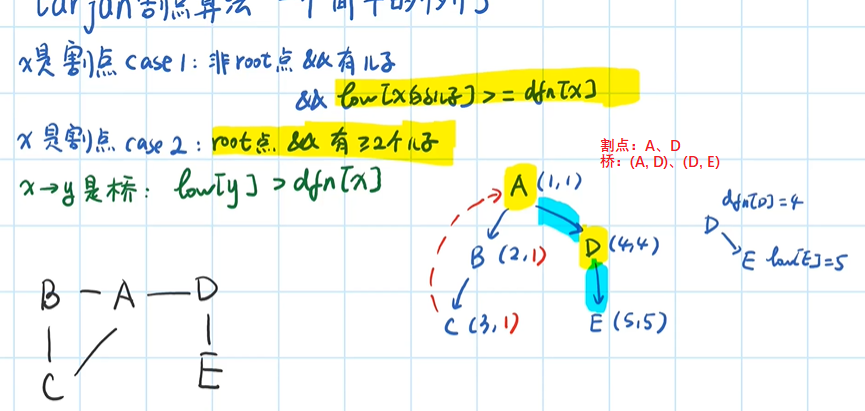 Tarjan割点算法 一个简单的例子
x是割点 case 1: 非root点 && 有儿子
&& low[x的儿子] >= dfn[x]
x是割点 case 2: root点 && 有≥2个儿子
x→y是桥: low[y] > dfn[x]
割点：A、D
桥：(A, D)、(D, E)
A (1,1)
B (2,1)
D (4,4)
C (3,1)
E (5,5)
dfn[D]=4
D
E low[E]=5
B A D
C E